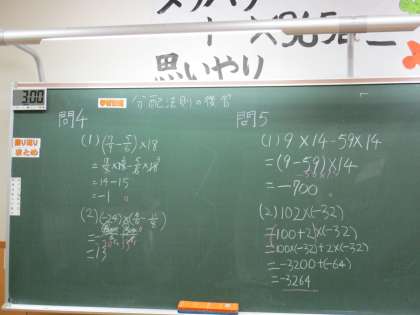 ×365に
思いやり
3:00
学習課題 分配法則の復習
振り返り
まとめ
問4
(1) (7/9-5/6)×18
=7/9×18-5/6×18
=14-15
=-1
(2) (-24)×(
=-
=13
問5
(1) 9×14-59×14
=(9-59)×14
=-700
(2) 102×(-32)
=100+2×(-32)
=100×(-32)+2×(-32)
=-3200+(-64)
=-3264